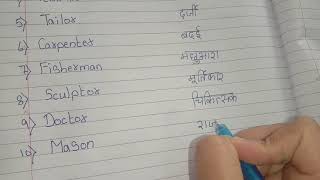 5) Tailor दर्जी
6) Carpenter बढ़ई
7) Fisherman मछुआरा
8) Sculptor मूर्तिकार
9) Doctor चिकित्सक
10) Mason राज